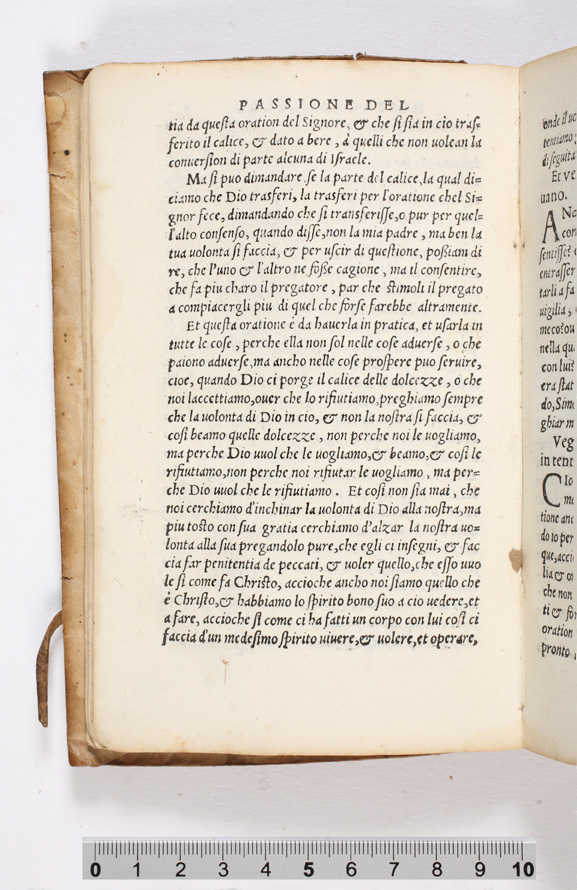 PASSIONE DEL
tia da questa oration del Signore, & che si sia in cio tras=
ferito il calice, & dato a bere, à quelli che non volean la
conversion di parte alcuna di Israele.
Ma si puo dimandare se la parte del calice, la qual di=
ciamo che Dio trasferi, la trasferi per l'oratione chel Si=
gnor fece, dimandando che si transferisse, o pur per quel=
l'alto consenso, quando disse, non la mia padre, ma ben la
tua volonta si faccia, & per uscir di questione, possiam di
re, che l'uno & l'altro ne fosse cagione, ma il consentire,
che fa piu charo il pregatore, par che stimoli il pregato
a compiacergli piu di quel che forse farebbe altramente.
Et questa oratione è da haverla in pratica, et usarla in
tutte le cose, perche ella non sol nelle cose adverse, o che
paiono adverse, ma ancho nelle cose prospere puo servire,
cioe, quando Dio ci porge il calice delle dolcezze, o che
noi laccettiamo, over che lo rifiutiamo, preghiamo sempre
che la volonta di Dio in cio, & non la nostra si faccia, &
cosi beamo quelle dolcezze, non perche noi le vogliamo,
ma perche Dio vuol che le vogliamo, & beamo, & cosi le
rifiutiamo, non perche noi rifiutar le vogliamo, ma per=
che Dio vuol che le rifiutiamo. Et cosi non sia mai, che
noi cerchiamo d'inchinar la volonta di Dio alla nostra, ma
piu tosto con sua gratia cerchiamo d'alzar la nostra vo=
lonta alla sua pregandolo pure, che egli ci insegni, & fac
cia far penitentia de peccati, & voler quello, che esso vuo
le si come fa Christo, accioche ancho noi siamo quello che
è Christo, & habbiamo lo spirito bono suo a cio vedere, et
a fare, accioche si come ci ha fatti un corpo con lui cosi ci
faccia d'un medesimo spirito vivere, & volere, et operare,
tentiamo;
di seguita
Et ve
vano.
sentisse?
entrasser
tarli a fa
vigilia,
nella qu
con lui?
era stat
do, Simo
ghiar m
Veg
in tent
CIo
tione anc
do io per
que, acci
lia & or
che non
ti & for
oration
pronto,
0 1 2 3 4 5 6 7 8 9 10